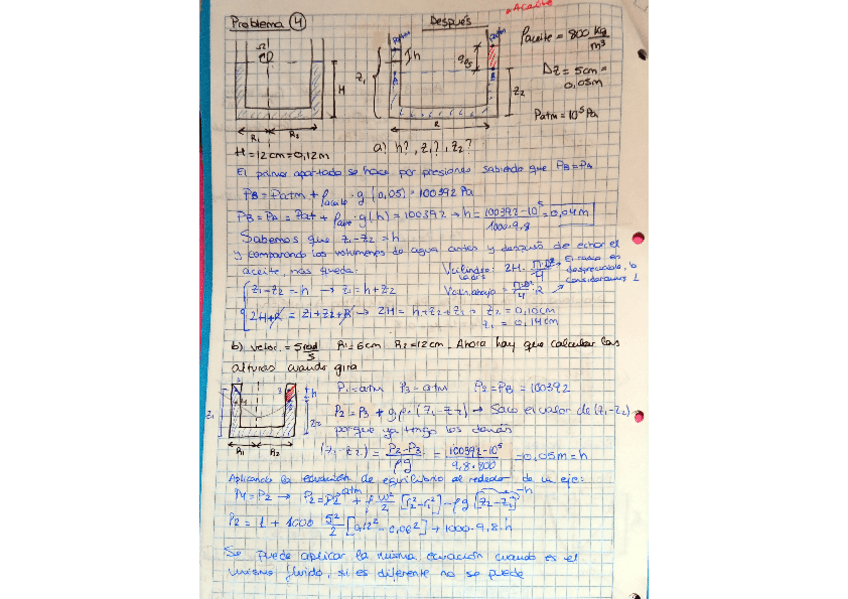 Problema 4
Después
Aceite
ρaceite = 800 kg/m³
ΔZ = 5cm = 0,05m
Patm = 10⁵ Pa
H = 12cm = 0,12m
a) h?, z₁?, z₂?
El primer apartado se hace por presiones sabiendo que PB=PA
PB = Patm + ρaceite·g(0,05) = 100392 Pa
PB = PA = Pat + ρagua·g(h) = 100392 → h = (100392-10⁵)/(1000·9,8) = 0,04m
Sabemos que z₁-z₂ = h
y comparando los volumenes de agua antes y después de echar el
aceite, nos queda:
Vcilindro = 2H· π·D²/4
El radio es despreciable, lo consideramos 1
z₁-z₂ = h → z₁ = h+z₂
2H+R = z₁+z₂+R → 2H = h+z₂+z₂ = z₂ = 0,10cm
z₁ = 0,14cm
b) veloc. = 5 rad/s R₁=6cm R₂=12cm. Ahora hay que calcular las
alturas cuando gira
P₁=atm P₃=atm P₂=PB = 100392
P₂ = P₃ + g·ρ·(z₁-z₂) → Saco el valor de (z₁-z₂)
porque ya tengo los demás
(z₁-z₂) = (P₂-P₃)/ρg = (100392-10⁵)/(9,8·800) = 0,05m = h
Aplicando la ecuación de equilibrio alrededor de la eje:
P₂ = 1 + 1000 5²/2 [0,12²-0,06²] + 1000·9,8·h
Se puede aplicar la misma ecuación cuando es el
mismo fluido, si es diferente no se puede